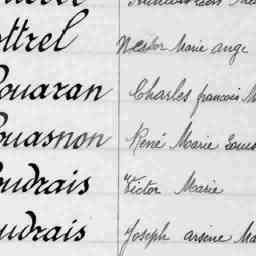 ottrel Nestor Marie ange
ouaran Charles françois M
ouasnon René Marie Louis
oudrais Victor Marie
udrais Joseph arsène Ma